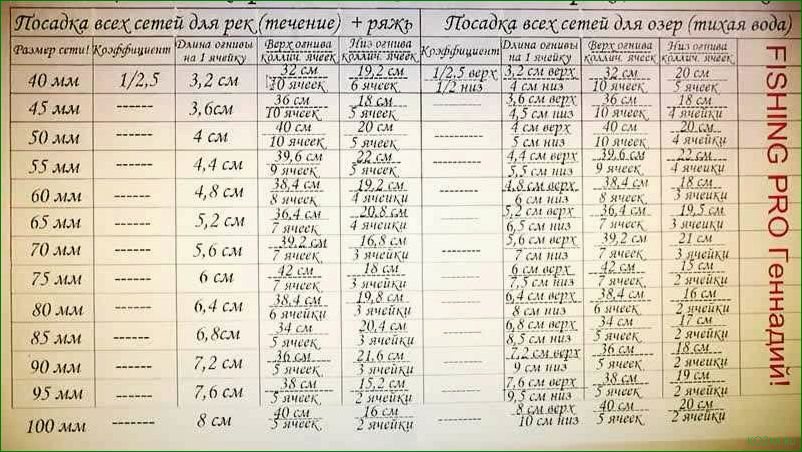 Посадка всех сетей для рек (течение) + ряжь Посадка всех сетей для озер (тихая вода)
Размер сети! Коэффициент Длина огнивы на 1 ячейку Верх огнива коллич. ячеек Низ огнива коллич. ячеек Коэффициент Длина огнивы на 1 ячейку Верх огнива коллич. ячеек Низ огнива коллич. ячеек
40 мм 1/2,5 3,2 см 32 см 10 ячеек 19,2 см 6 ячеек 1/2,5 верх 1/2 низ 3,2 см верх 4 см низ 32 см 10 ячеек 20 см 5 ячеек
45 мм ------ 3,6см 36 см 10 ячеек 18 см 5 ячеек 3,6 см верх 4,5 см низ 36 см 10 ячеек 18 см 4 ячейки
50 мм ------ 4 см 40 см 10 ячеек 20 см 5 ячеек -------- 4 см верх 5 см низ 40 см 10 ячеек 20 см 4 ячейки
55 мм ------ 4,4 см 39,6 см 9 ячеек 22 см 5 ячеек -------- 4,4 см верх 5,5 см низ 39,6 см 9 ячеек 22 см 4 ячейки
60 мм ------ 4,8 см 38,4 см 8 ячеек 19,2 см 4 ячейки -------- 4,8 см верх 6 см низ 38,4 см 8 ячеек 18 см 3 ячейки
65 мм ------ 5,2 см 36,4 см 7 ячеек 20,8 см 4 ячейки -------- 5,2 см верх 6,5 см низ 36,4 см 7 ячеек 19,5 см 3 ячейки
70 мм ------ 5,6 см 39,2 см 7 ячеек 16,8 см 3 ячейки -------- 5,6 см верх 7 см низ 39,2 см 7 ячеек 21 см 3 ячейки
75 мм ------ 6 см 42 см 7 ячеек 18 см 3 ячейки -------- 6 см верх 7,5 см низ 42 см 7 ячеек 15 см 2 ячейки
80 мм ------ 6,4 см 38,4 см 6 ячеек 19,8 см 3 ячейки -------- 6,4 см верх 8 см низ 38,4 см 6 ячеек 16 см 2 ячейки
85 мм ------ 6,8см 34 см 5 ячеек 20,4 см 3 ячейки -------- 6,8 см верх 8,5 см низ 34 см 5 ячеек 17 см 2 ячейки
90 мм ------ 7,2 см 36 см 5 ячеек 21,6 см 3 ячейки -------- 7,2 см верх 9 см низ 36 см 5 ячеек 18 см 2 ячейки
95 мм ------ 7,6 см 38 см 5 ячеек 15,2 см 2 ячейки -------- 7,6 см верх 9,5 см низ 38 см 5 ячеек 19 см 2 ячейки
100 мм ------- 8 см 40 см 5 ячеек 16 см 2 ячейки -------- 8 см верх 10 см низ 40 см 5 ячеек 20 см 2 ячейки
FISHING PRO Геннадий!